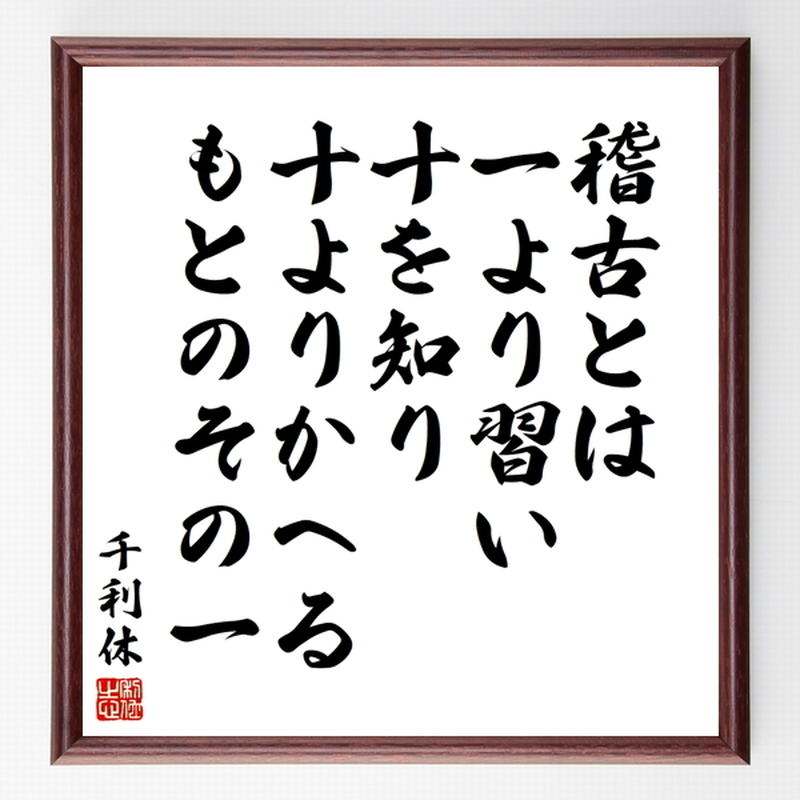 稽古とは
一より習い
十を知り
十よりかへる
もとのその一
千利休